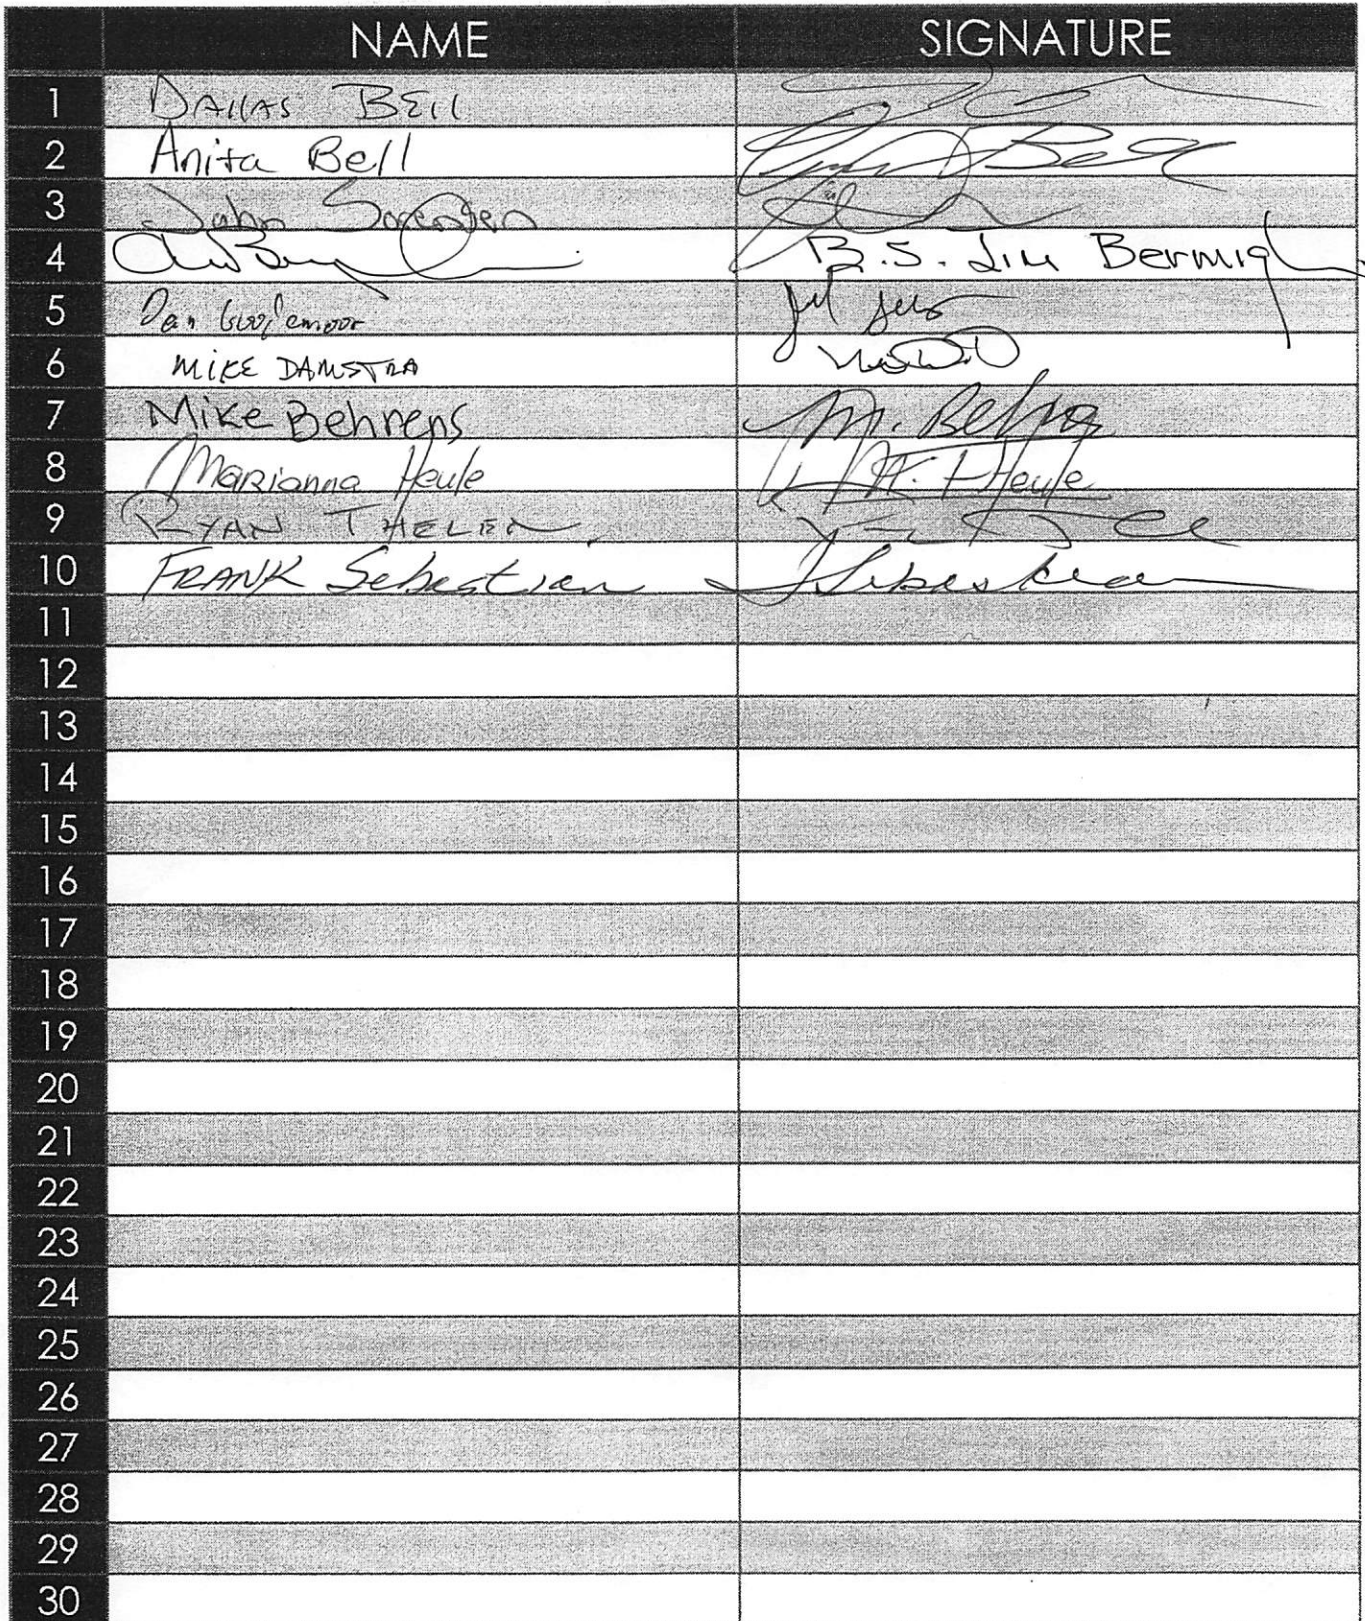 NAME SIGNATURE
1 DAllAS BEll
2 Anita Bell Bell
3 John Sorensen
4 B.S. Jim
5 Dan
6 MIKE DAMSTRA
7 Mike Behrens M. Behrens
8 Marianna Heule M. Heule
9 RYAN THELEN
10 FRANK Sebastian Sebastian
11
12
13
14
15
16
17
18
19
20
21
22
23
24
25
26
27
28
29
30